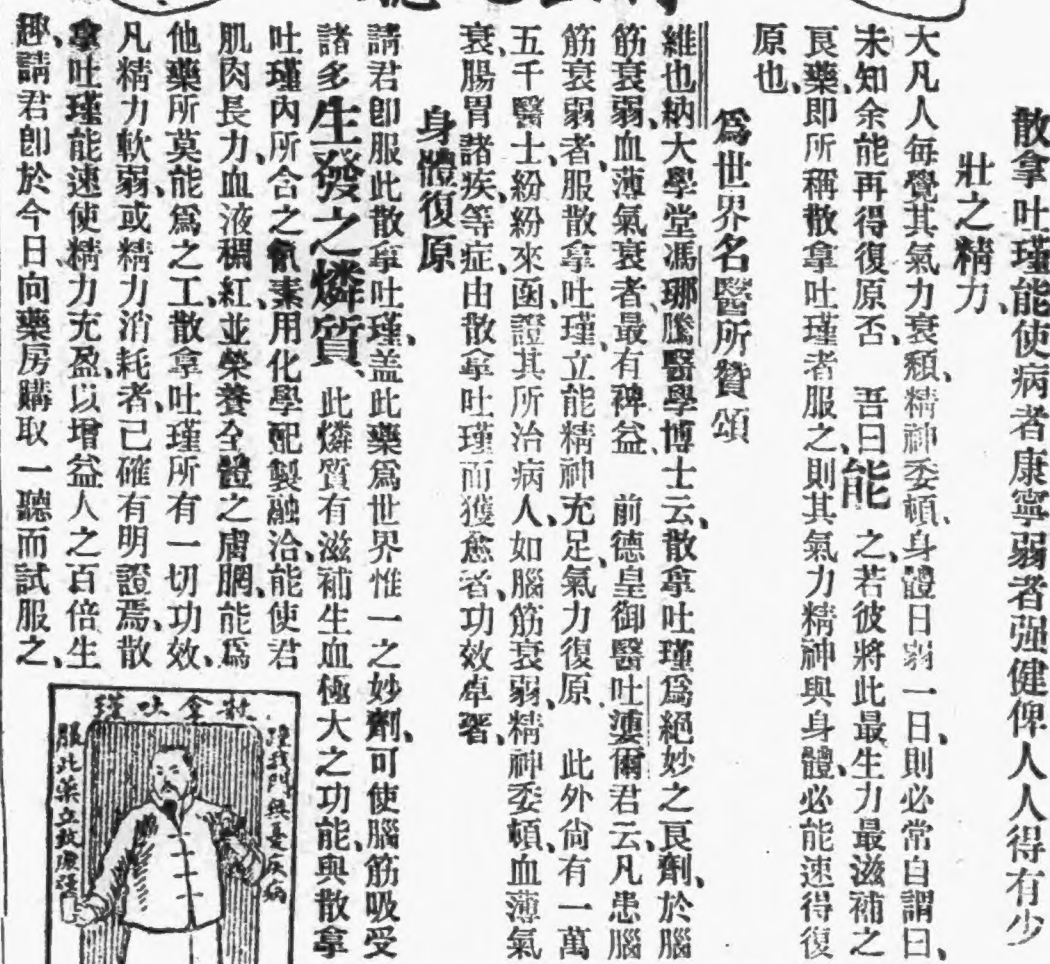 散拿吐瑾能使病者康寧弱者强健俾人人得有少
壯之精力、
大凡人每覺其氣力衰頹、精神委頓、身體日弱一日、則必常自謂曰、
未知余能再得復原否 吾曰能之、若彼將此最生力最滋補之
良藥、即所稱散拿吐瑾者服之、則其氣力精神與身體、必能速得復
原也、
爲世界名醫所贊頌
維也納大學堂馮瑯騰醫學博士云、散拿吐瑾爲絕妙之良劑、於腦
筋衰弱、血薄氣衰者最有裨益 前德皇御醫吐凄爾君云、凡患腦
筋衰弱者、服散拿吐瑾、立能精神充足、氣力復原 此外尙有一萬
五千醫士、紛紛來函、證其所治病人、如腦筋衰弱、精神委頓、血薄氣
衰、腸胃諸疾、等症、由散拿吐瑾而獲愈者、功效卓著、
身體復原
請君卽服此散拿吐瑾、盖此藥爲世界惟一之妙劑、可使腦筋吸受
諸多生發之燐質、此燐質有滋補生血極大之功能、與散拿
吐瑾內所含之氮素、用化學配製融洽、能使君
肌肉長力、血液穊紅、並榮養全體之膚膶、能爲
他藥所莫能爲之工、散拿吐瑾所有一切功效、
凡精力軟弱、或精力消耗者、已確有明證焉、散
拿吐瑾能速使精力充盈、以增益人之百倍生
趣、請君卽於今日向藥房購取一聽而試服之、
散拿吐瑾
我們無憂疾病
服此藥立致康强